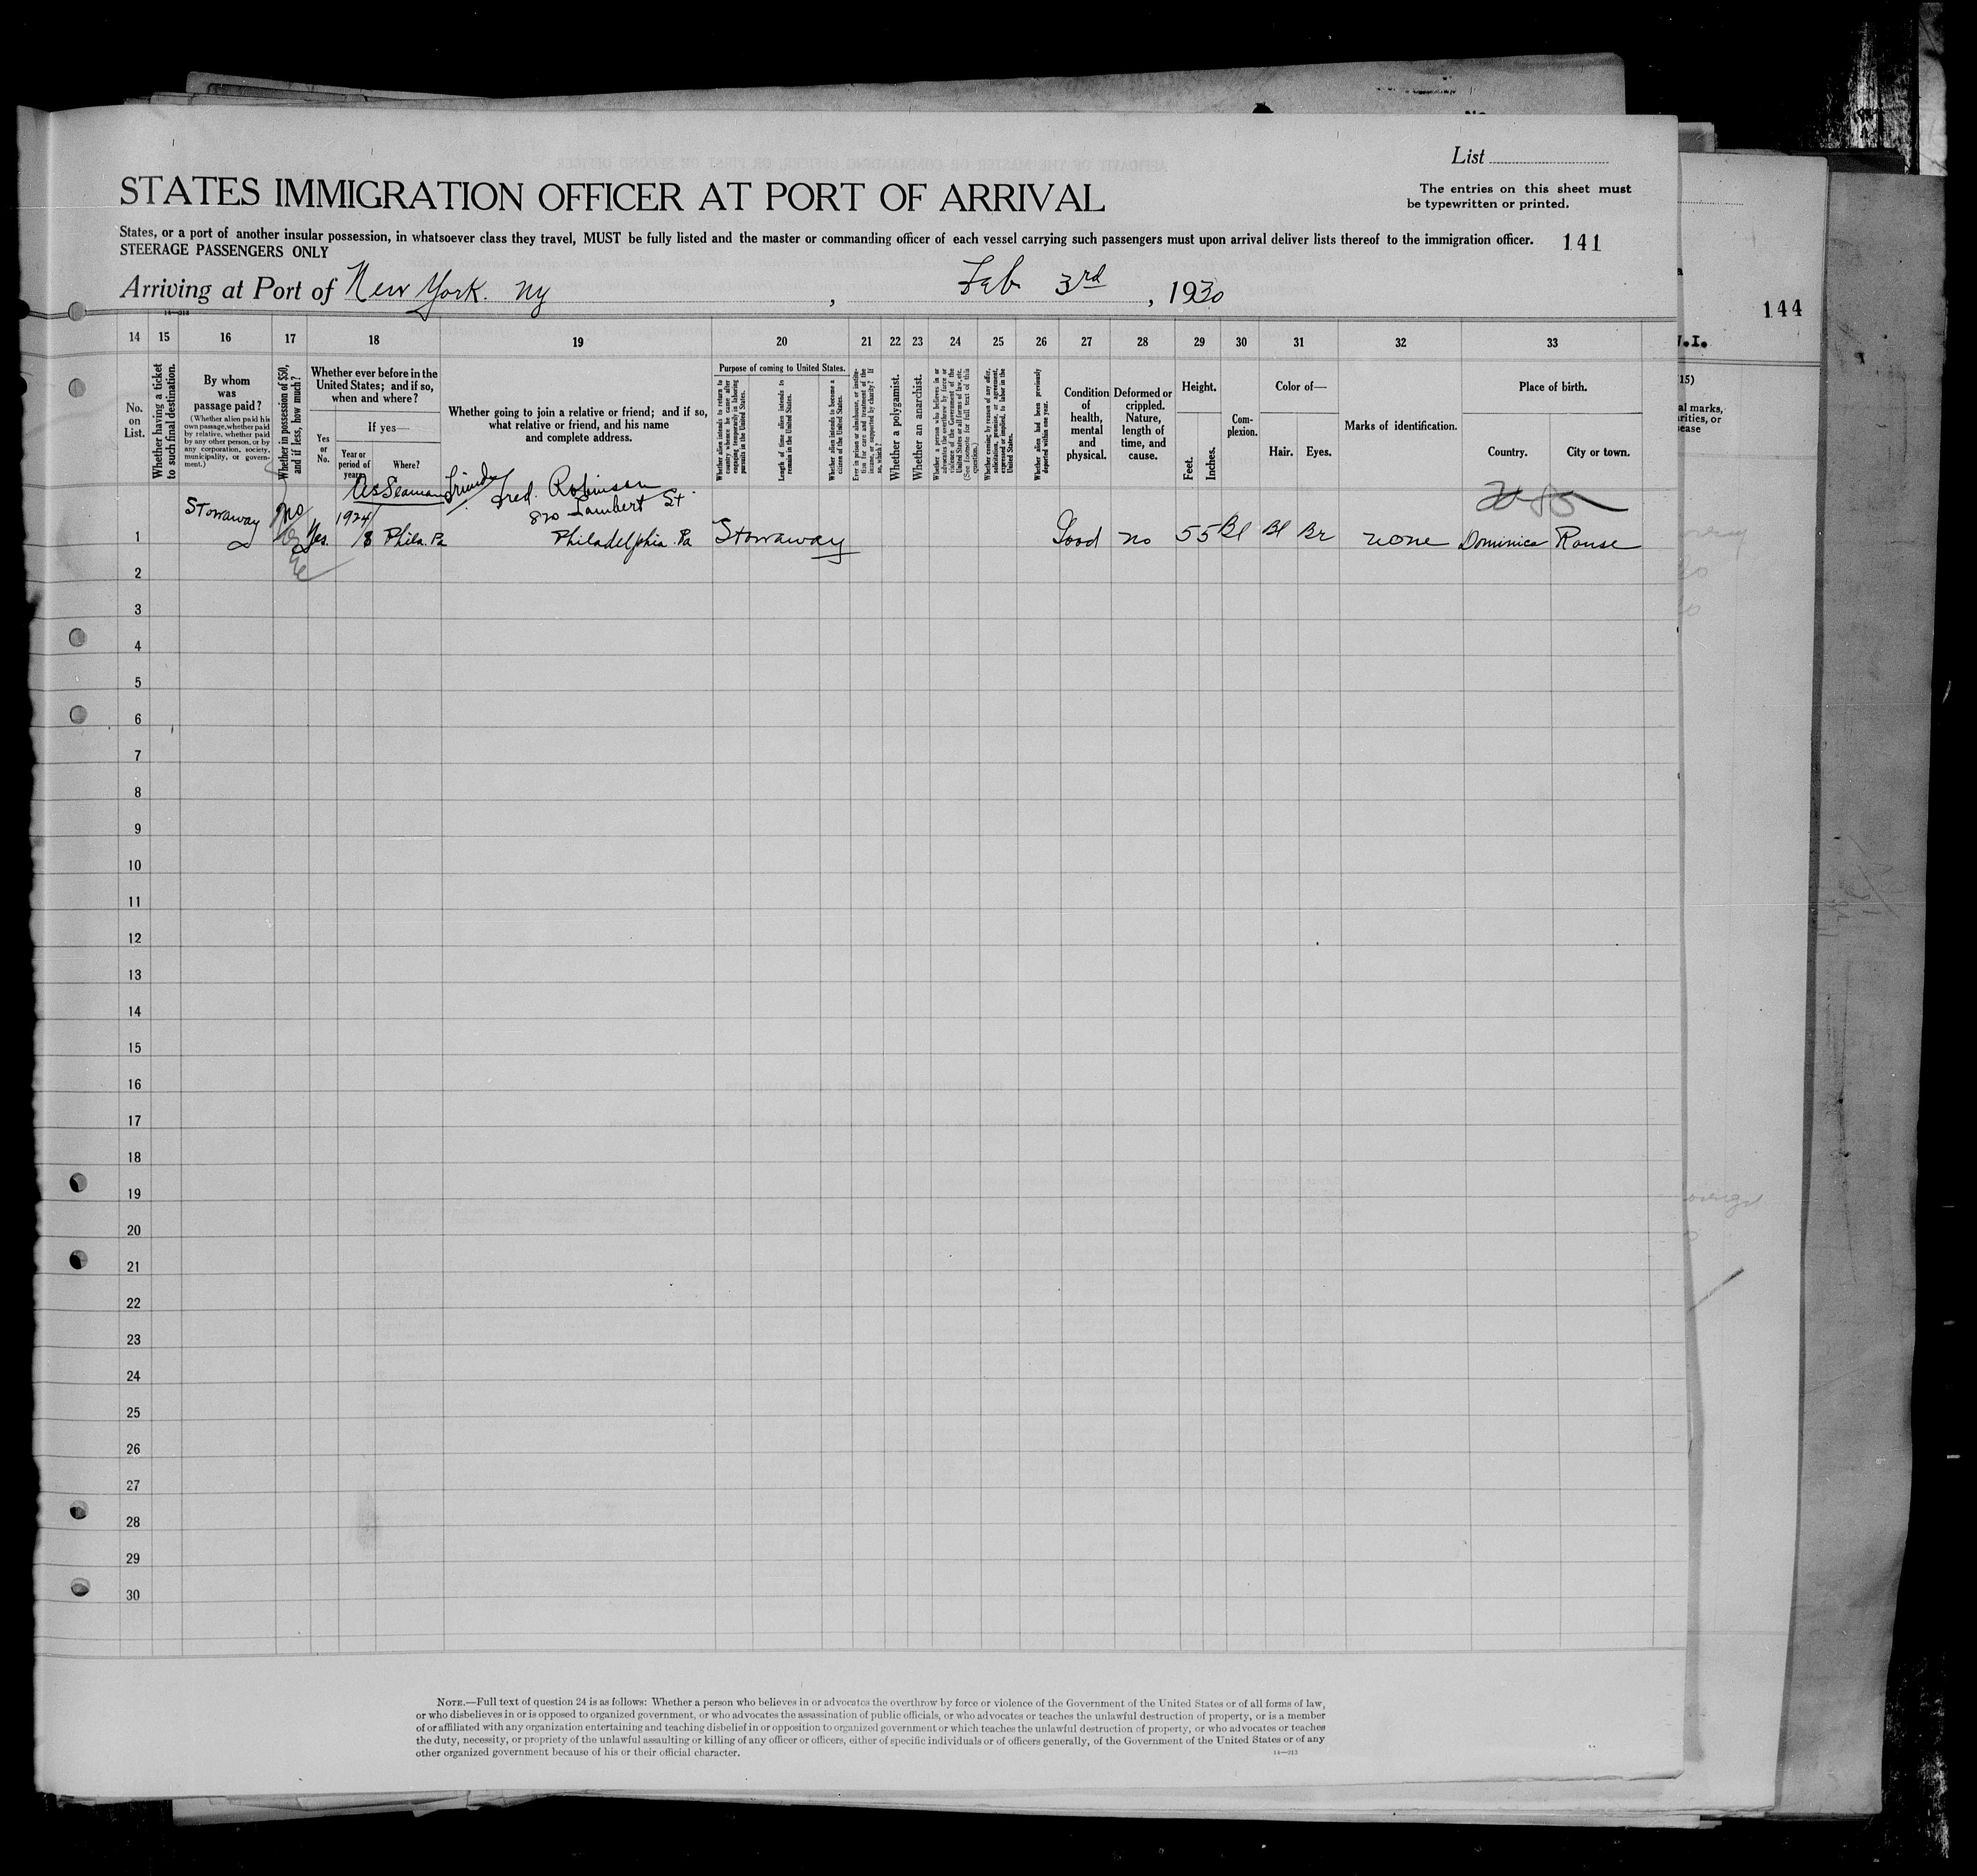 List
STATES IMMIGRATION OFFICER AT PORT OF ARRIVAL
The entries on this sheet must
be typewritten or printed.
States, or a port of another insular possession, in whatsoever class they travel, MUST be fully listed and the master or commanding officer of each vessel carrying such passengers must upon arrival deliver lists thereof to the immigration officer.
141
STEERAGE PASSENGERS ONLY
Arriving at Port of New York. Ny , Feb 3rd , 1930
144
14—213
14 15 16 17 18 19 20 21 22 23 24 25 26 27 28 29 30 31 32 33
No. on List.
Whether having a ticket to such final destination.
By whom was passage paid?
(Whether alien paid his own passage, whether paid by relative, whether paid by any other person, or by any corporation, society, municipality, or government.)
Whether in possession of $50, and if less, how much?
Whether ever before in the United States; and if so, when and where?
Yes or No.
If yes—
Year or period of years.
Where?
Whether going to join a relative or friend; and if so, what relative or friend, and his name and complete address.
Purpose of coming to United States.
Whether alien intends to return to country whence he came after engaging temporarily in laboring pursuits in the United States.
Length of time alien intends to remain in the United States.
Whether alien intends to become a citizen of the United States.
Ever in prison or almshouse, or institution for care and treatment of the insane, or supported by charity? If so, which?
Whether a polygamist.
Whether an anarchist.
Whether a person who believes in or advocates the overthrow by force or violence of the Government of the United States or all forms of law, etc. (See footnote for full text of this question.)
Whether coming by reason of any offer, solicitation, promise, or agreement, expressed or implied, to labor in the United States.
Whether alien had been previously deported within one year.
Condition of health, mental and physical.
Deformed or crippled. Nature, length of time, and cause.
Height.
Feet. Inches.
Complexion.
Color of—
Hair. Eyes.
Marks of identification.
Place of birth.
Country. City or town.
As Seaman Friend Fred. Robinson
820 Lambert St.
Stowaway no 1924
1 Yes. /8 Phila. Pa Philadelphia. Pa Stowaway Good no 5 5 Bl Bl Br none Dominica Rouse
2
3
4
5
6
7
8
9
10
11
12
13
14
15
16
17
18
19
20
21
22
23
24
25
26
27
28
29
30
NOTE.—Full text of question 24 is as follows: Whether a person who believes in or advocates the overthrow by force or violence of the Government of the United States or of all forms of law,
or who disbelieves in or is opposed to organized government, or who advocates the assassination of public officials, or who advocates or teaches the unlawful destruction of property, or is a member
of or affiliated with any organization entertaining and teaching disbelief in or opposition to organized government or which teaches the unlawful destruction of property, or who advocates or teaches
the duty, necessity, or propriety of the unlawful assaulting or killing of any officer or officers, either of specific individuals or of officers generally, of the Government of the United States or of any
other organized government because of his or their official character.
14—213